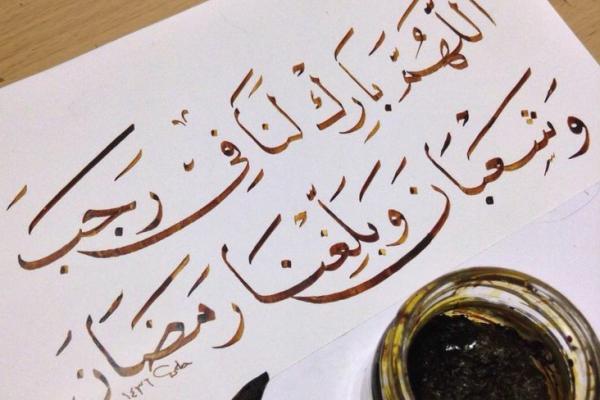 اللَّهُمَّ بَارِكْ لَنَا فِي رَجَبَ
وَشَعْبَانَ وَبَلِّغْنَا
رَمَضَانَ
١٤٣٦